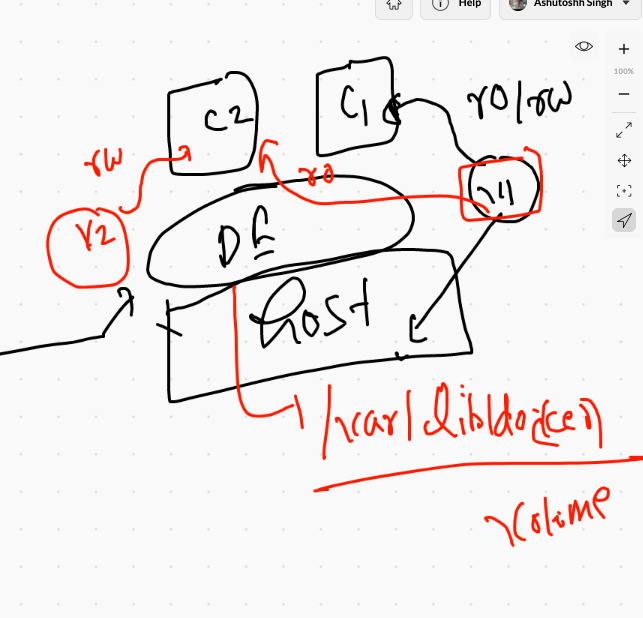 Help
Ashutoshh Singh
100%
C2
C1
ro/rw
rw
ro
V1
V2
DE
host
/var/lib/docker/
volume